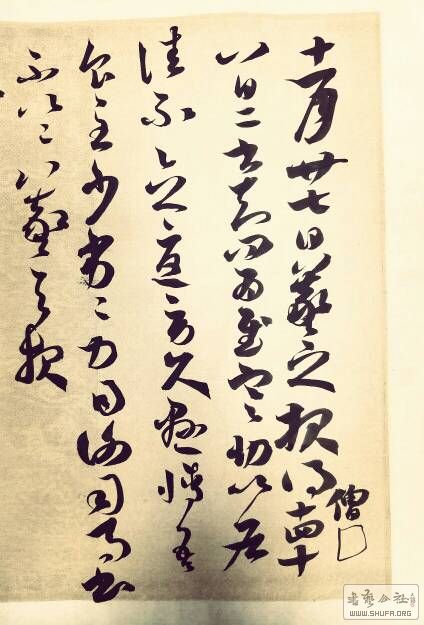 十一月廿七日羲之報得十四十
僧
八日二書知問為慰寒切比各
佳不念憂勞久懸情吾
食至少劣劣力因謝司馬書
不一一羲之報
书艺公社
WWW.SHUFA.ORG